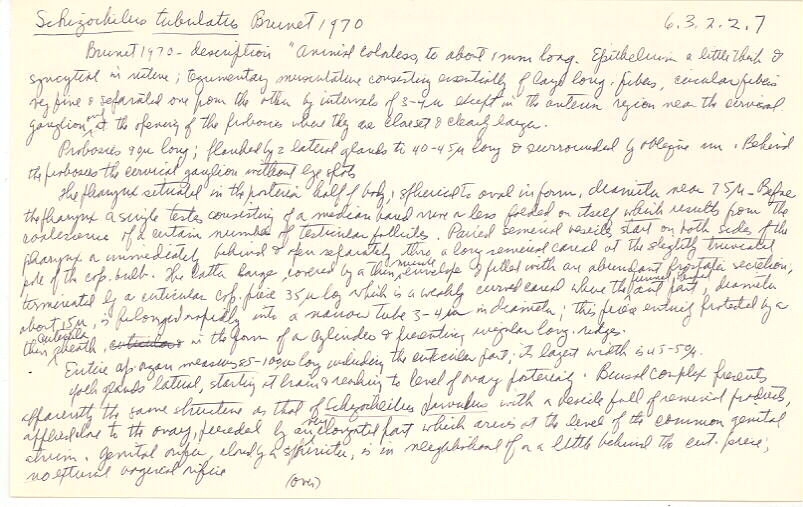 Schizochilus tubulatus Brunet 1970 6.3.2.2.7
Brunet 1970 - description "Animal colorless, to about 1 mm long. Epithelium a little thick &
syncytial in nature; tegumentary musculature consisting essentially of large long. fibers, circular fibers
very fine & separated one from the other by intervals of 3-4µ except in the anterior region near the cervical
ganglion and at the opening of the proboscis where they are closest & clearly larger.
Proboscis 90µ long; flanked by 2 lateral glands to 40-45µ long & surrounded by oblique mm. Behind
the proboscis the cervical ganglion without eye spots
The pharynx situated in the posterior half of body; spherical to oval in form, diameter near 75µ - Before
the pharynx a single testis consisting of a median band more or less folded on itself which results from the
coalescence of a certain number of testicular follicles. Paired seminal vesicles start on both sides of the
pharynx or immediately behind & open separately thru a long seminal canal at the slightly truncated
pole of the cop. bulb. The latter large, covered by a thin muscle envelope & filled with an abundant prostatic secretion,
terminated by a cuticular cop. piece 35µ long which is a weakly curved canal where the funnel-shaped ant part, diameter
about 15µ, is prolonged rapidly into a narrow tube 3-4µm in diameter; this piece entirely protected by a
thin cuticular sheath, in the form of a cylinder & presenting regular long. ridges.
Entire cop. organ measures 85-100µ long including the cuticular part; its largest width is 45-50µ.
Yolk glands lateral, starting at brain & reaching to level of ovary posteriorly. Bursal complex presents
apparently the same structure as that of Schizochilus parvulus with a vesicle full of seminal products,
applied close to the ovary, preceded by an elongated part which arises at the level of the common genital
atrium. Genital orifice, closed by a sphincter, is in neighborhood of or a little behind the cut. piece;
no external vaginal orifice
(over)